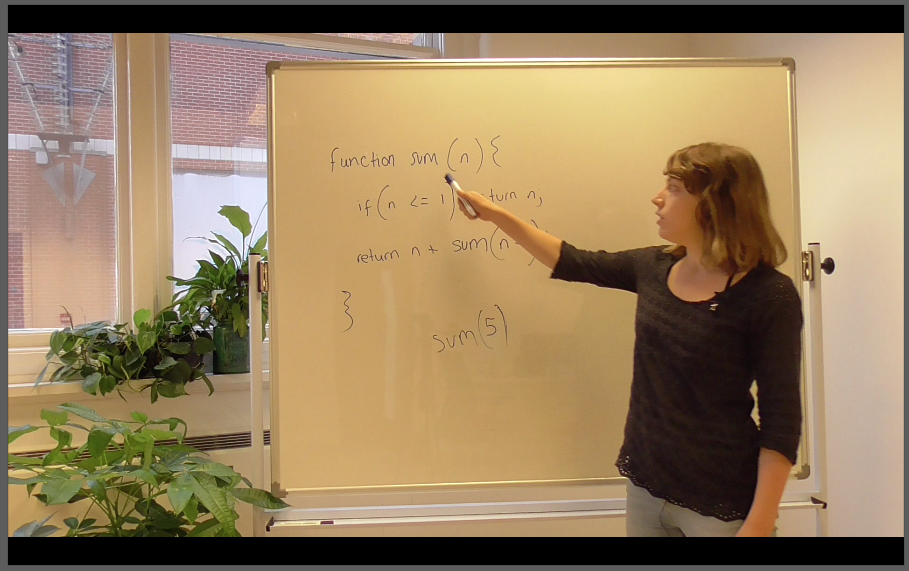 function sum (n) {
if (n <= 1) return n;
return n + sum(n-
}
sum(5)